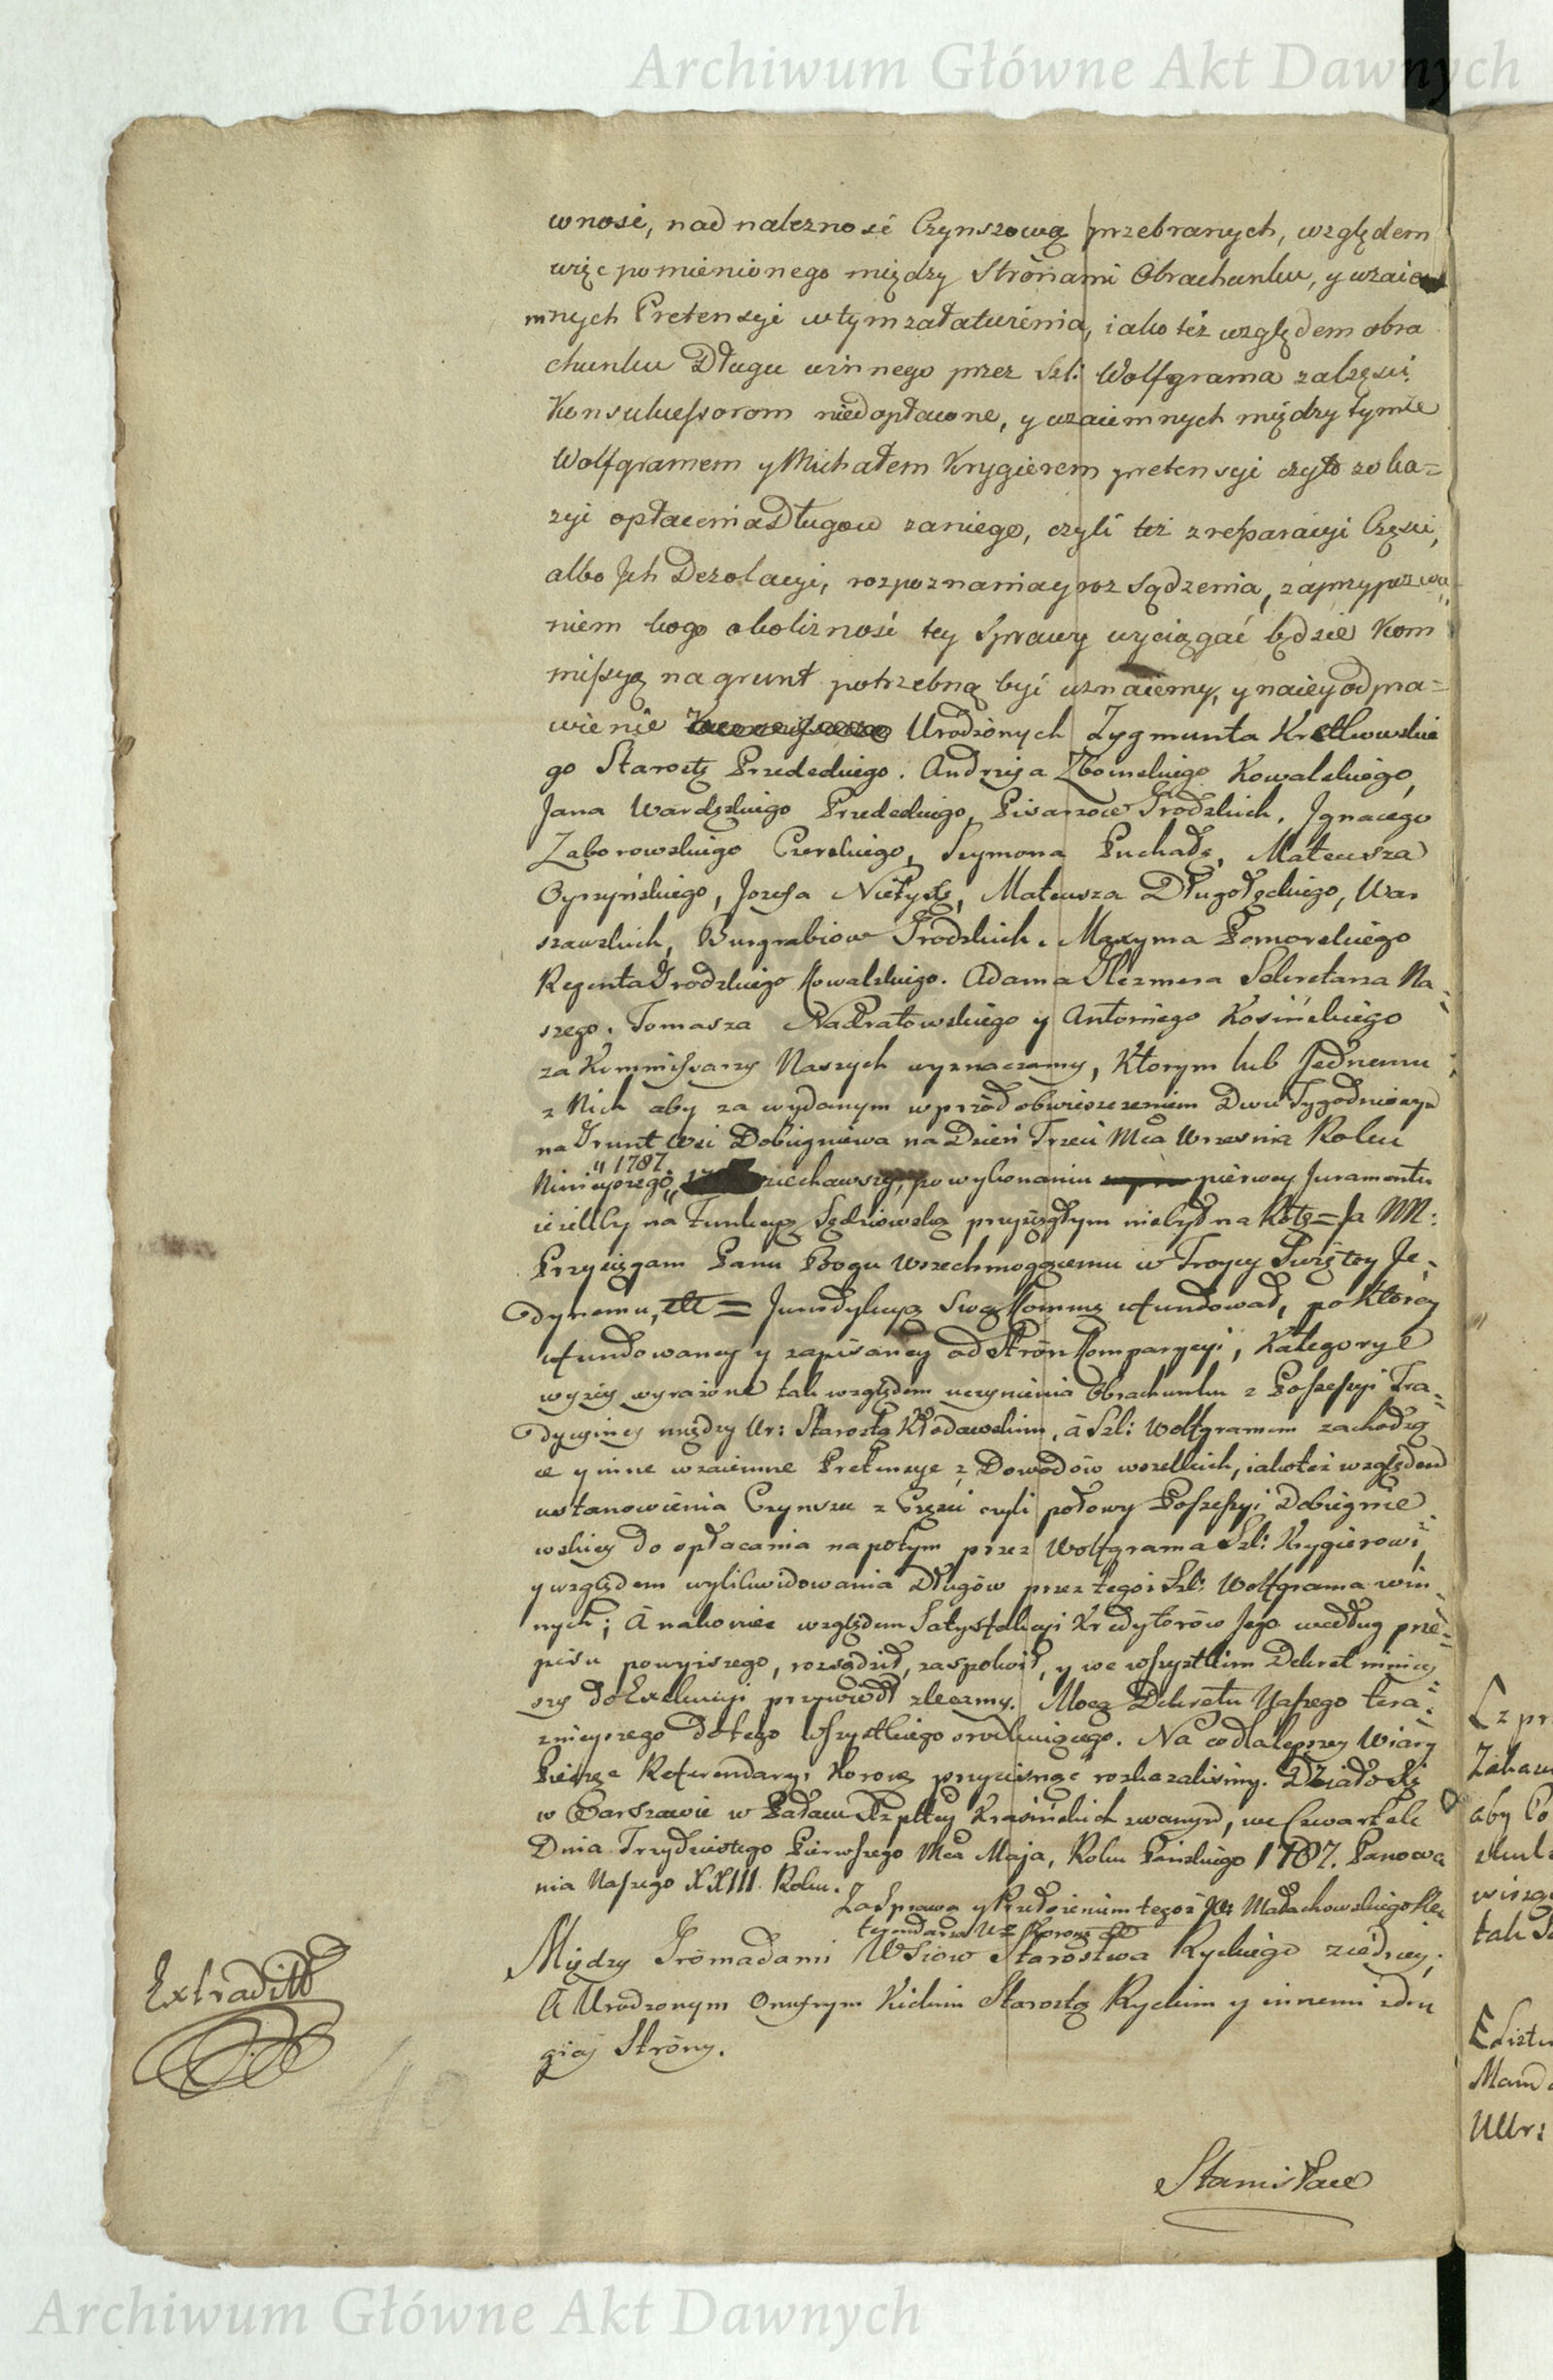 Archiwum Główne Akt Dawnych
wnosi, nad nalezność Czynszową przebranych, względem
więc pomienionego między Strónami Obrachunku, y wzaie
mnych Pretensyi w tym załatwienia, iako też względem obra
chunku Długu winnego przez Szl: Wolfgrama zalzęści
Konsukcessorom niedopłacone, y wzaiemnych między tymże
Wolfgramem y Michałem Krygierem pretensyi czyto zoka=
zyi opłacenia Długow zaniego, czyli też z reparacyi Części,
albo Jch Dezolacyi, rozpoznania y roz sądzenia, za przypozwa
niem kogo okoliczność tey Sprawy wyciągać będzie Kom
missyą na grunt potrzebną być uznaiemy, y na iey odpra=
wienie Urodzonych Zygmunta Kretkowskie
go Starostę Przedeckiego. Andrzeja Kowalskiego,
Jana Wardęskiego Przedeckiego, Pisarzow Grodzkich, Jgnacego
Zaborowskiego Czerskiego, Szymona Puchałę, Mateusza
Oyrzyńskiego, Jozefa Nietyxę, Mateusza Długołęckiego, War
szawskich, Burgrabiow Grodzkich. Maxyma Pomorskiego
Regenta Grodzkiego Kowalskiego. Adama Sekretarza Na=
szego. Tomasza Nadratowskiego y Antoniego Kosińskiego
za Kommissarzy Naszych wyznaczamy, Ktorym lub Jednemu
z Nich aby za wydanym wprzód obwieszczeniem Dwu Tygodniowym
na Grunt wsi Dobiegniewa na Dzień Trzeci Mca Września Roku
Ninieyszego 1787. ziechawszy, po wykonaniu pierwey Juramentu
ieźeliby na Funkcyą Sędziowską przysięgłym niebył na Rotę = Ja NN:
Przysięgam Panu Bogu Wszechmogącemu w Troycy Świętey Je=
dynemu, ettc = Jurisdykcyą Swą Kommą ufundował, po Ktorey
ufundowaney y zapisaney od Strón Komparycyi, Kategorye
wyżey wyrażone tak względem uczynienia Obrachunku z Possessyi Tra=
dycyiney między Ur: Starostą Kłodawskim, á Szl: Wolfgramem zachodzą
ce y inne wzaiemne Pretensye z Dowodów wszelkich, iakoteż względem
ustanowienia Czynszu z Części czyli połowy Possessyi Dobiegnie=
wskiey do opłacania na potym przez Wolfgrama Szl: Krygierowi,
y względem wylikwidowania Długów przez tegoż Szl: Wolfgrama win=
nych; A nakoniec względem Satysfakcyi Kredytorów Jego według prze=
pisu powyższego, rozsądził, zaspokoił, y we wszystkim Dekret niniey
szy do Exekucyi przywiódł zlecamy. Mocą Dekretu Naszego tera=
znieyszego do tego wszystkiego Na co dla lepszey Wiary
Pieczęć Referendaryi Koroney przycisnąć rozkazaliśmy. Działo się
w Warszawie w Pałacu Rzpltey Krasińskich zwanym, we Czwartek
Dnia Trzydziestego Pierwszego Mca Maja, Roku Pańskiego 1787. Panowa
nia Naszego XXIII. Roku.
Za Sprawą y Przełożeniem tegoż JW: Małachowskiego Re
ferendarza W: Koronego
Między Gromadami Wsiow Starostwa Ryckiego ziedney;
A Urodzonym Onufrym Kickim Starostą Ryckim y innemi zdru
giey Strony.
Extradit
40
Stanisław
Archiwum Główne Akt Dawnych